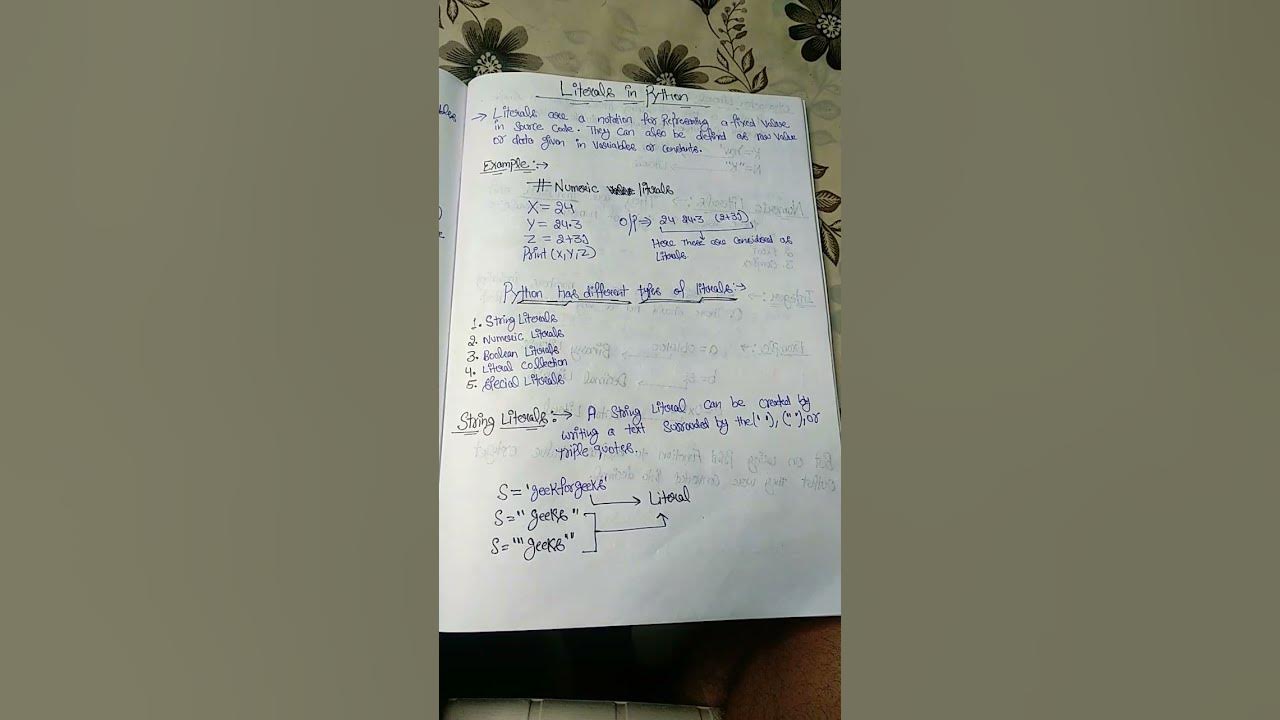 Literals in Python
→ Literals are a notation for Representing a fixed value
in source code. They can also be defined as raw value
or data given in variables or constants.
Example:→
# Numeric literals
X = 24
Y = 24.3 o/p ⇒ 24 24.3 (2+3J)
Z = 2+3J Here These are considered as
Print (X,Y,Z) Literals
Python has different types of literals:→
1. String Literals
2. Numeric Literals
3. Boolean Literals
4. Literal Collection
5. Special Literals
String Literals:→ A String Literal can be created by
writing a text surrouded by the(' '), (" "), or
triple quotes.
S = 'geekforgeeks' → Literal
S = " geeks "
S = '''geeks'''